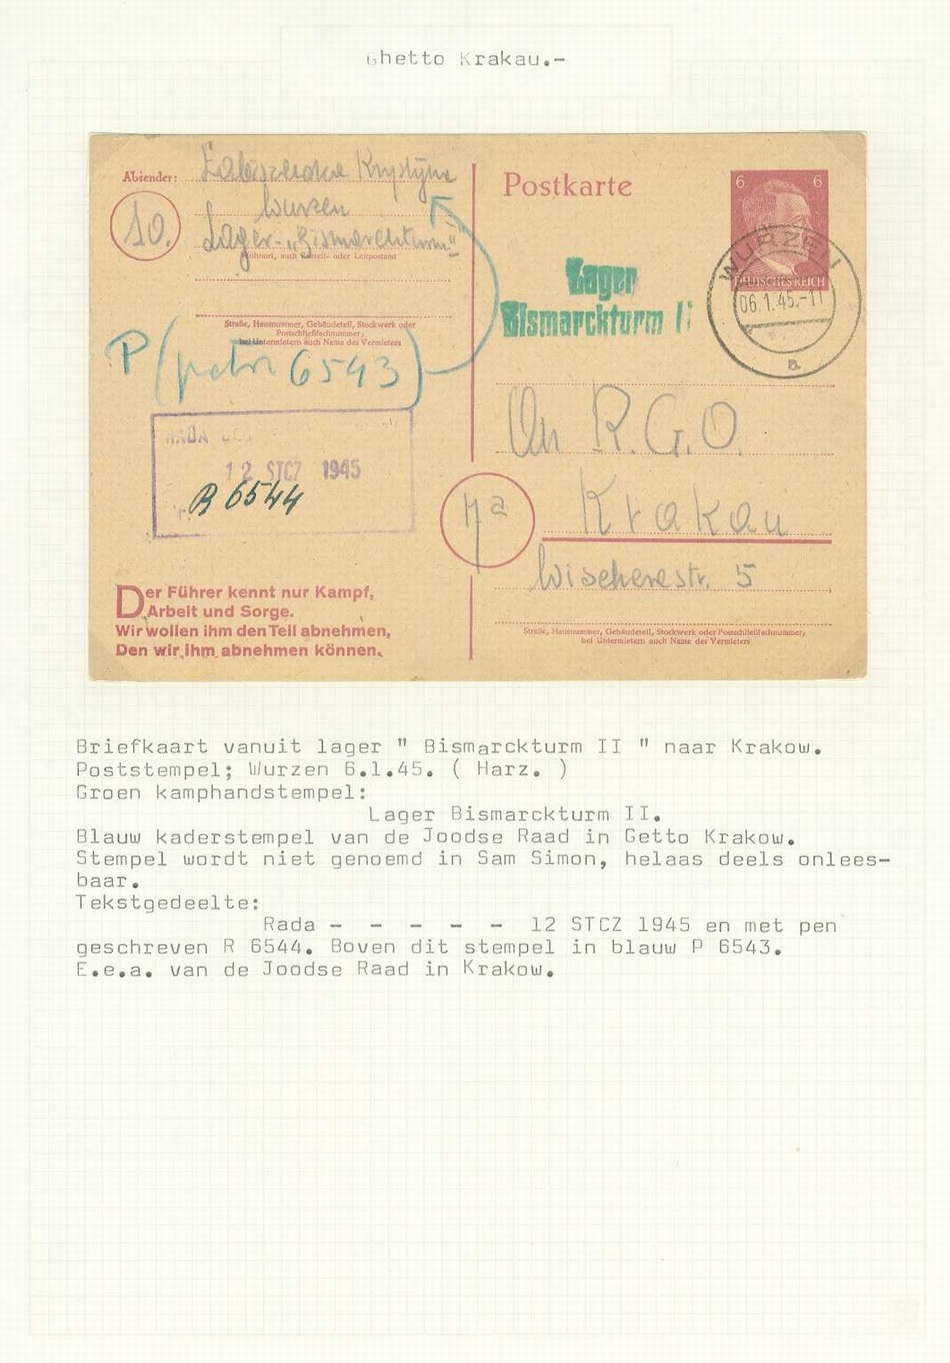 Ghetto Krakau.-
Absender:
Wurzen
Lager-„Bismarckturm"
Wohnort, auch Zustell- oder Leitpostamt
10.
Straße, Hausnummer, Gebäudeteil, Stockwerk oder
Postschließfachnummer;
bei Untermietern auch Name des Vermieters
P (patrz 6543)
RADA
12 STCZ 1945
R 6544
Der Führer kennt nur Kampf,
Arbeit und Sorge.
Wir wollen ihm den Teil abnehmen,
Den wir ihm abnehmen können.
Postkarte
6 6
DEUTSCHES REICH
WURZEN
06.1.45.-11
a
Lager
Bismarckturm II
An R.G.O.
7a
Krakau
5
Straße, Hausnummer, Gebäudeteil, Stockwerk oder Postschließfachnummer;
bei Untermietern auch Name des Vermieters
Briefkaart vanuit lager " Bismarckturm II " naar Krakow.
Poststempel; Wurzen 6.1.45. ( Harz. )
Groen kamphandstempel:
Lager Bismarckturm II.
Blauw kaderstempel van de Joodse Raad in Getto Krakow.
Stempel wordt niet genoemd in Sam Simon, helaas deels onlees-
baar.
Tekstgedeelte:
Rada - - - - - 12 STCZ 1945 en met pen
geschreven R 6544. Boven dit stempel in blauw P 6543.
E.e.a. van de Joodse Raad in Krakow.